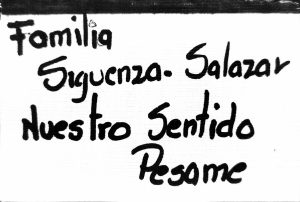 Familia
Siguenza- Salazar
Nuestro Sentido
Pesame